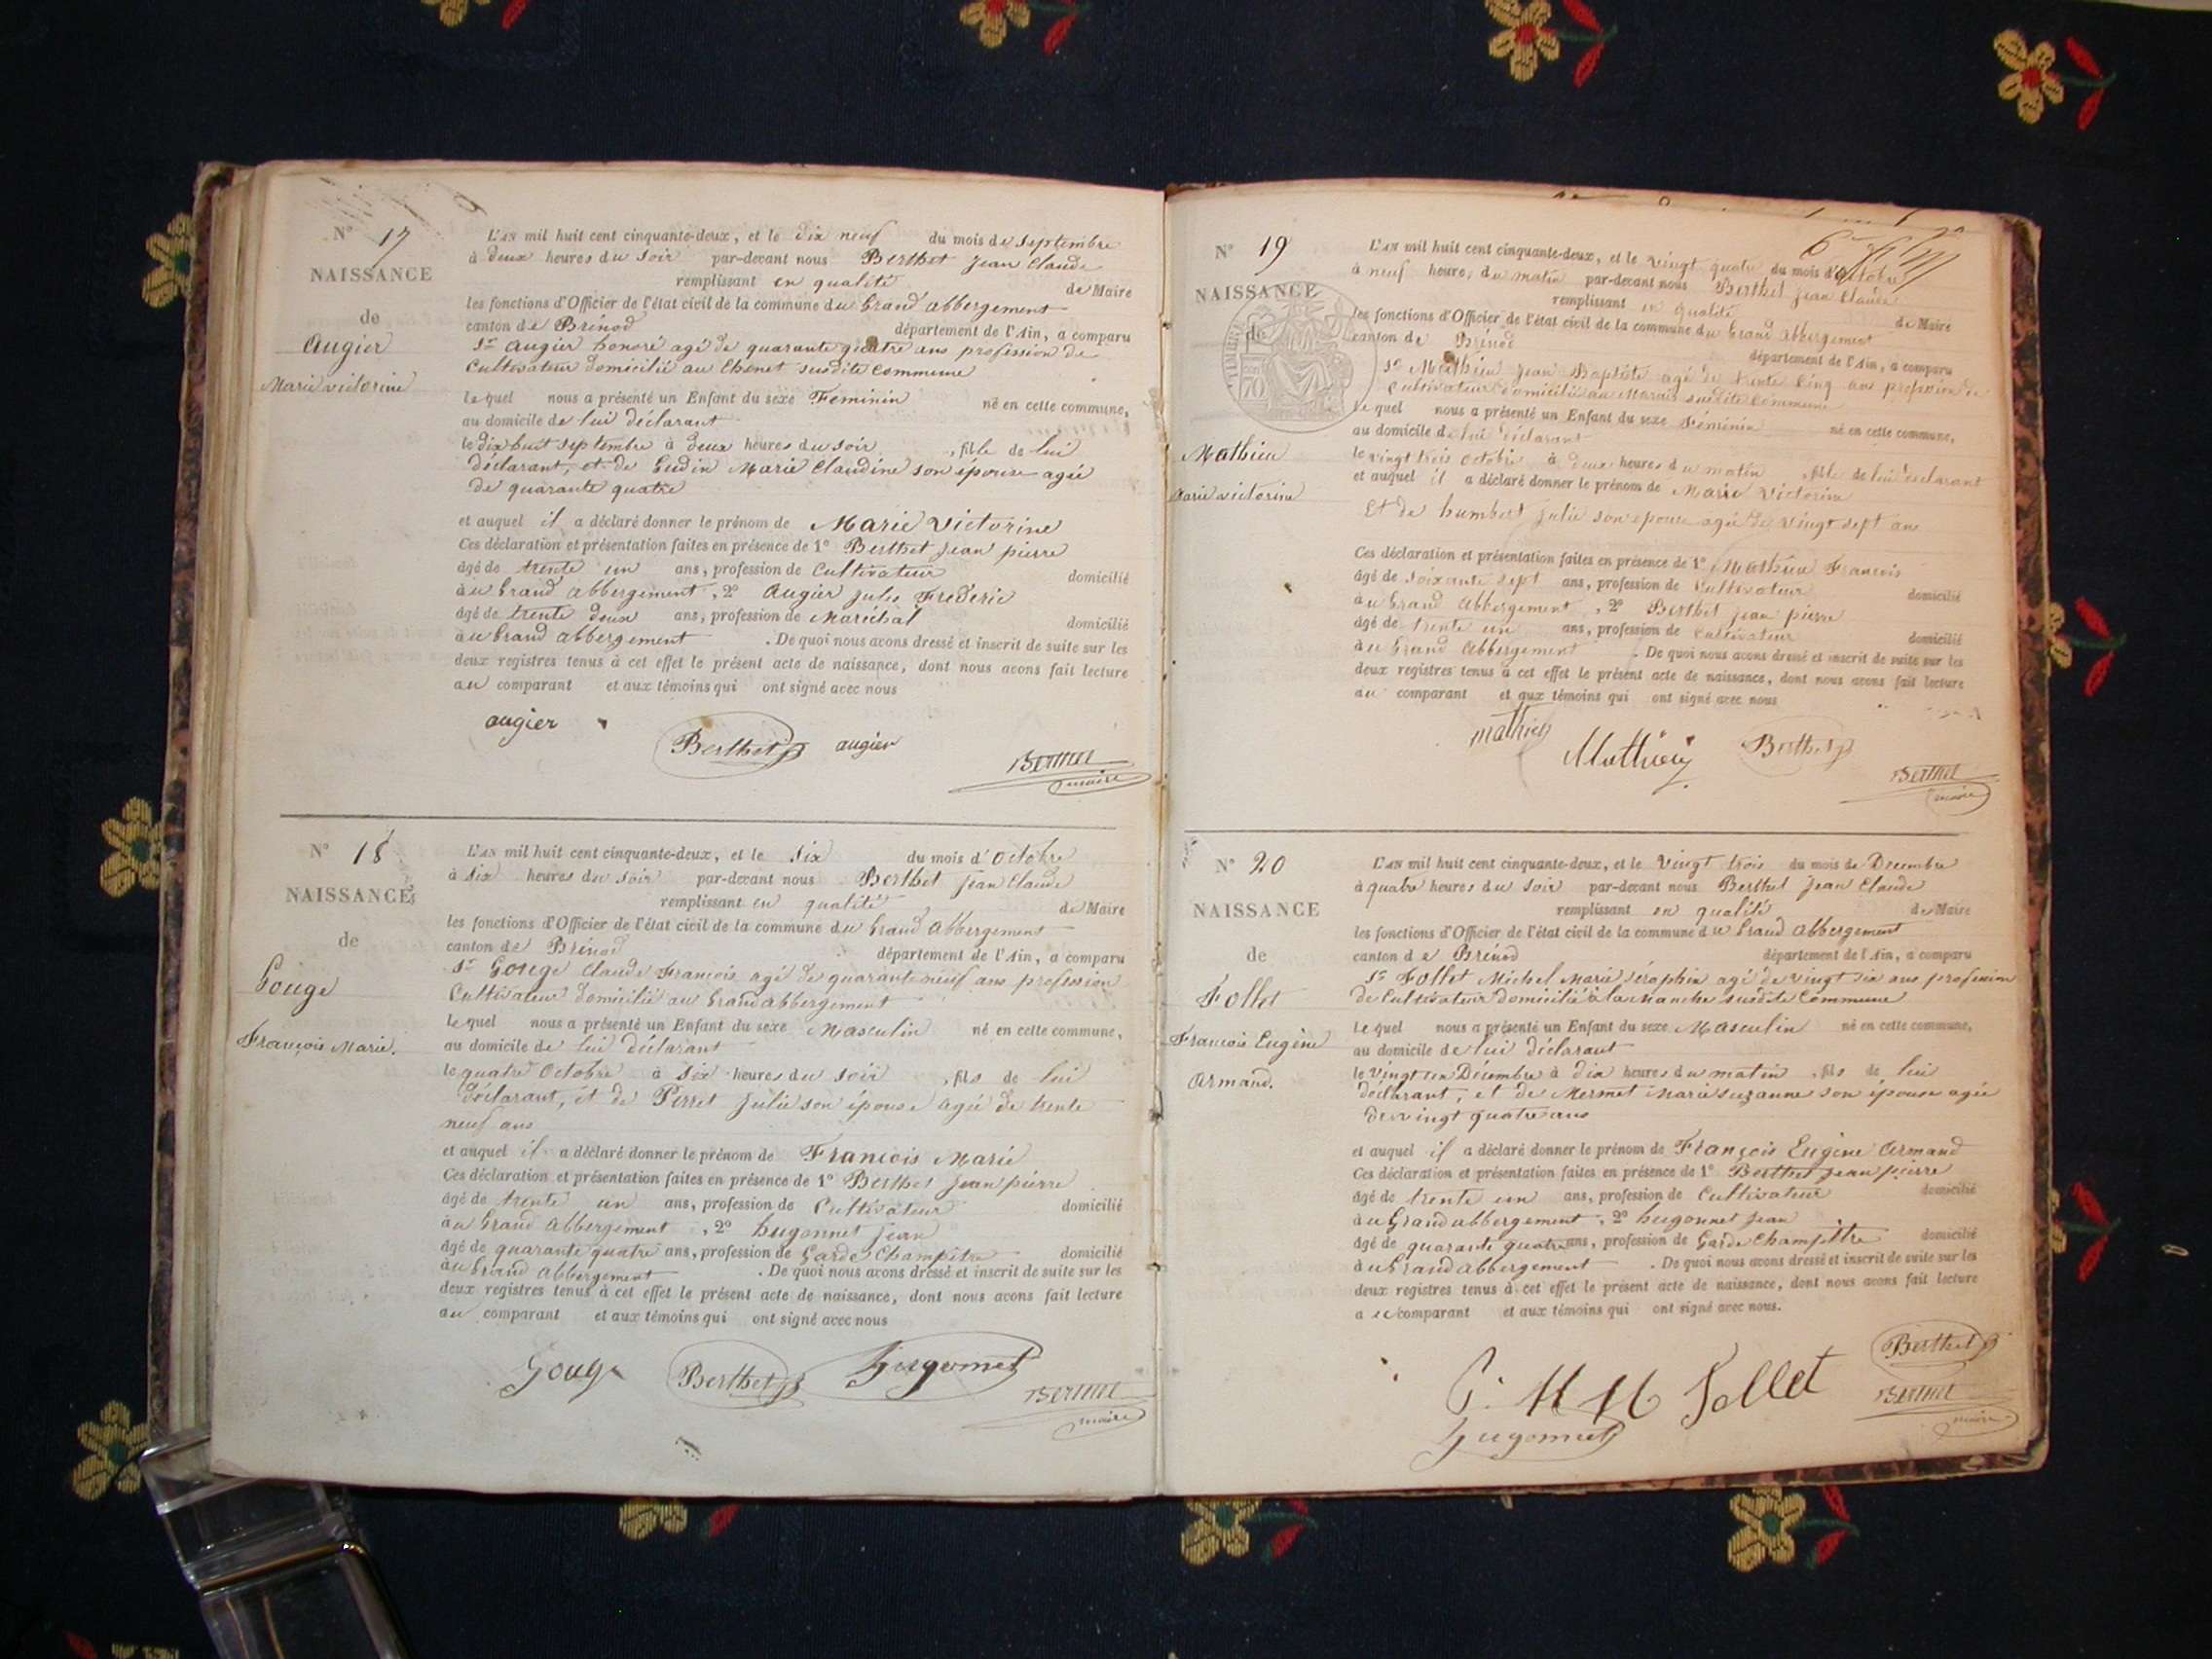 N° 17
NAISSANCE
de
Augier
Marie victorine
L'AN mil huit cent cinquante-deux, et le dix neuf du mois de Septembre
à deux heures du Soir par-devant nous Berthet Jean Claude
remplissant en qualité de Maire
les fonctions d'Officier de l'état civil de la commune du Grand abbergement
canton de Brénod département de l'Ain, a comparu
Sr Augier honoré agé de quarante quatre ans profession de
Cultivateur domicilié au Chenet susdite Commune
lequel nous a présenté un Enfant du sexe Feminin né en cette commune,
au domicile de lui déclarant
le dix huit Septembre à deux heures du soir , fille de lui
déclarant, et de Marie Claudine son épouse agée
de quarante quatre
et auquel il a déclaré donner le prénom de Marie Victorine
Ces déclaration et présentation faites en présence de 1° Berthet Jean pierre
âgé de trente un ans, profession de Cultivateur domicilié
au Grand abbergement , 2° Augier Jules Frederic
âgé de trente deux ans, profession de Maréchal domicilié
au Grand abbergement . De quoi nous avons dressé et inscrit de suite sur les
deux registres tenus à cet effet le présent acte de naissance, dont nous avons fait lecture
au comparant et aux témoins qui ont signé avec nous
augier Berthet augier
Berthet
maire
N° 18
NAISSANCE
de
Gouge
François Marie.
L'AN mil huit cent cinquante-deux, et le Six du mois d'Octobre
à Six heures du Soir par-devant nous Berthet Jean Claude
remplissant en qualité de Maire
les fonctions d'Officier de l'état civil de la commune du Grand Abbergement
canton de Brénod département de l'Ain, a comparu
Sr Gouge Claude François agé de quarante neuf ans profession
Cultivateur domicilié au Grand abbergement
lequel nous a présenté un Enfant du sexe Masculin né en cette commune,
au domicile de lui déclarant
le quatre Octobre à Six heures du Soir , fils de lui
déclarant, et de Perret Julie son épouse agée de trente
neuf ans
et auquel il a déclaré donner le prénom de François Marie
Ces déclaration et présentation faites en présence de 1° Berthet Jean pierre
âgé de trente un ans, profession de Cultivateur domicilié
au Grand Abbergement , 2° hugonnet Jean
âgé de quarante quatre ans, profession de Garde Champêtre domicilié
au Grand Abbergement . De quoi nous avons dressé et inscrit de suite sur les
deux registres tenus à cet effet le présent acte de naissance, dont nous avons fait lecture
au comparant et aux témoins qui ont signé avec nous
Gouge Berthet hugonnet
Berthet
maire
N° 19
NAISSANCE
de
TIMBRE
70
Mathieu
Marie victorine
L'AN mil huit cent cinquante-deux, et le vingt quatre du mois d'Octobre
à neuf heures du matin par-devant nous Berthet Jean Claude
remplissant en qualité de Maire
les fonctions d'Officier de l'état civil de la commune du Grand Abbergement
canton de Brénod département de l'Ain, a comparu
Sr Mathieu Jean Baptiste agé de trente Cinq ans profession de
Cultivateur domicilié au Marais susdite Commune
lequel nous a présenté un Enfant du sexe Féminin né en cette commune,
au domicile de lui déclarant
le vingt trois Octobre à deux heures du matin , fille de lui déclarant
et auquel il a déclaré donner le prénom de Marie Victorine
Et de humbert Julie son épouse agée de vingt sept ans
Ces déclaration et présentation faites en présence de 1° Mathieu François
âgé de Soixante sept ans, profession de Cultivateur domicilié
au Grand Abbergement , 2° Berthet Jean pierre
âgé de trente un ans, profession de Cultivateur domicilié
au Grand Abbergement . De quoi nous avons dressé et inscrit de suite sur les
deux registres tenus à cet effet le présent acte de naissance, dont nous avons fait lecture
au comparant et aux témoins qui ont signé avec nous
mathieu Mathieu Berthet
Berthet
maire
N° 20
NAISSANCE
de
Follet
François Eugène
Armand.
L'AN mil huit cent cinquante-deux, et le Vingt trois du mois de Décembre
à quatre heures du Soir par-devant nous Berthet Jean Claude
remplissant en qualité de Maire
les fonctions d'Officier de l'état civil de la commune du Grand Abbergement
canton de Brénod département de l'Ain, a comparu
Sr Follet Michel Marie Séraphin agé de vingt six ans profession
de Cultivateur domicilié à la Manche susdite Commune
lequel nous a présenté un Enfant du sexe Masculin né en cette commune,
au domicile de lui déclarant
le Vingt un Décembre à dix heures du matin , fils de lui
déclarant, et de Mermet Marie Suzanne son épouse agée
de vingt quatre ans
et auquel il a déclaré donner le prénom de François Eugène Armand
Ces déclaration et présentation faites en présence de 1° Berthet Jean pierre
âgé de trente un ans, profession de Cultivateur domicilié
au Grand abbergement , 2° hugonnet Jean
âgé de quarante quatre ans, profession de Garde Champêtre domicilié
au Grand abbergement . De quoi nous avons dressé et inscrit de suite sur les
deux registres tenus à cet effet le présent acte de naissance, dont nous avons fait lecture
au comparant et aux témoins qui ont signé avec nous.
Berthet
Follet
Berthet
maire
hugonnet